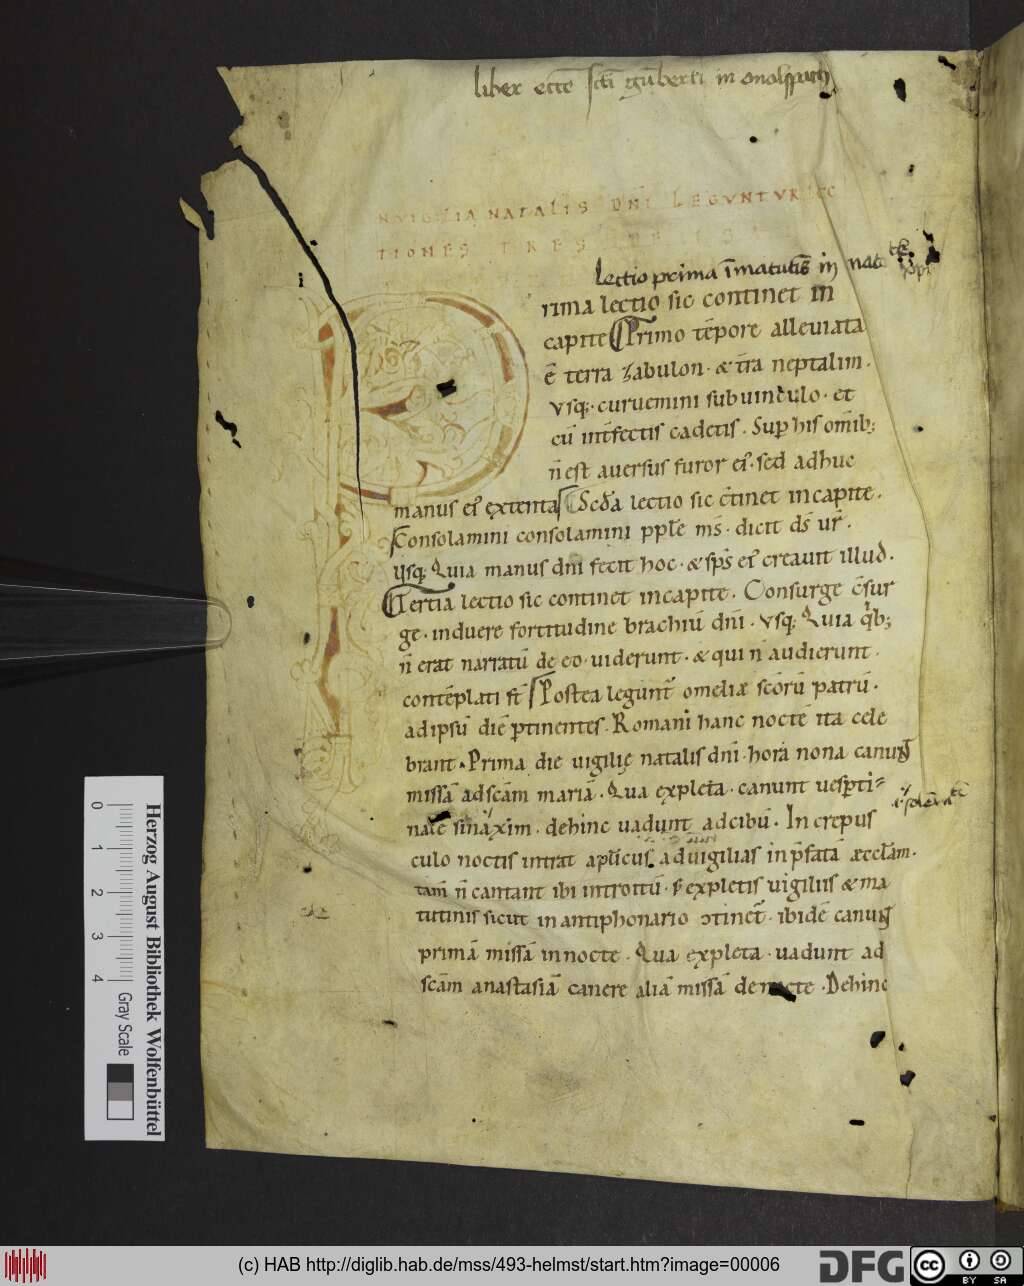 liber eccē scti gūberti in onolspach
N VIGILIA NATALIS DNI LEGVNTVR LEC
TIONES TRES
Lectio prima ī matutīs in nat
rima lectio sic continet in
capite Primo tēpore alleuiata
ē terra zabulon · & tra neptalim ·
vsq; · curuemini sub uinculo · et
cū intfectis cadetis . Sup his omib;
n̄ est auersus furor ei᷒ · sed adhuc
manus ei᷒ extenta Scda lectio sic c̄tinet in capite .
Consolamini consolamini pple ms̄ . dicit ds̄ ur̄ .
vsq; Quia manus dni fecit hoc · & sps̄ ei᷒ creauit illud .
Tertia lectio sic continet in capite . Consurge c̄sur
ge · induere fortitudine brachiū dni · vsq; Quia qb;
n̄ erat narratū de eo · uiderunt · & qui n̄ audierunt .
contēplati st̄ Postea legunt̄ omeliæ scōrū patrū .
ad ipsū diē ptinentes . Romani hanc noctē ita cele
brant . Prima die uigilię natalis dni · hora nona canunt
missā ad scām mariā . Qua expleta · canunt uespti=
nalē sinaxim · dehinc uadunt ad cibū . In crepus
culo noctis intrat aplicus ad uigilias in p̄fatā æcclām .
tam̄ n̄ cantant ibi introitū · s; expletis uigiliis & ma
tutinis sicut in antiphonario ɔtinet̄ · ibidē canunt
primā missā in nocte . Qua expleta · uadunt ad
scām anastasiā canere aliā missā de nocte . Dehinc
Herzog August Bibliothek Wolfenbüttel
0 1 2 3 4 Gray Scale
(c) HAB http://diglib.hab.de/mss/493-helmst/start.htm?image=00006
DFG
cc BY SA